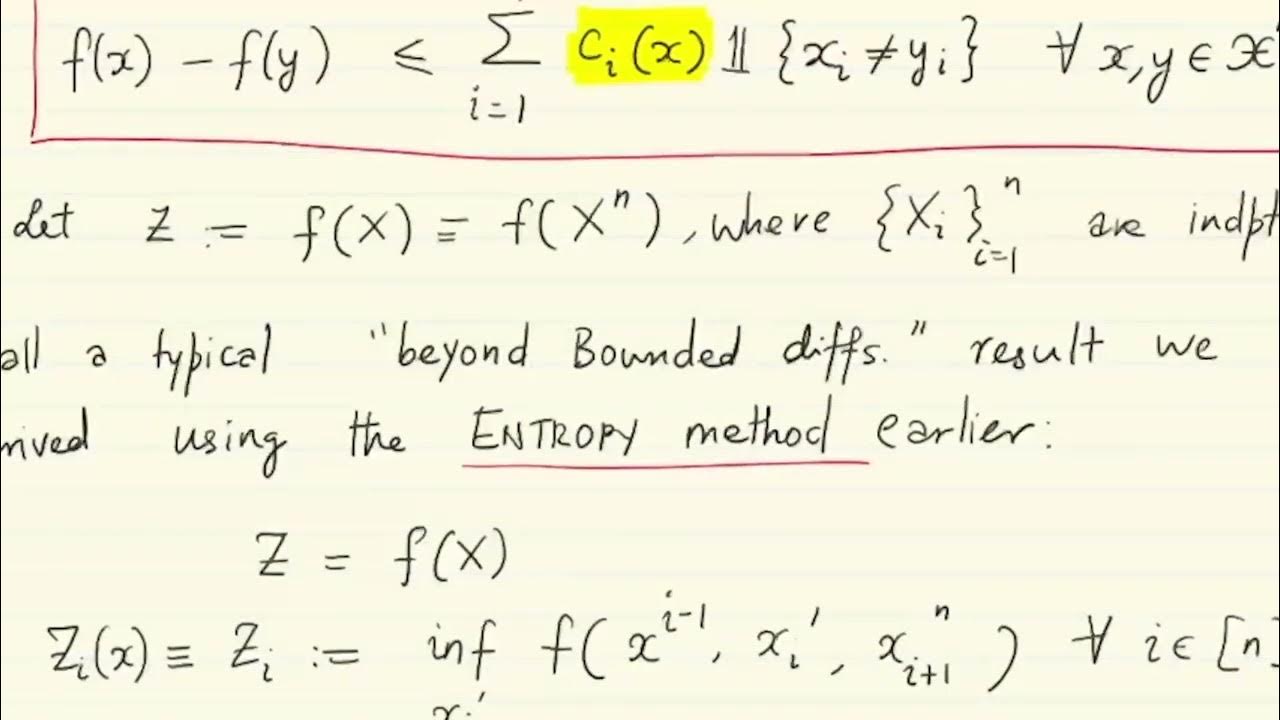 f(x) − f(y) ≤ ∑_{i=1} c_i(x) 𝟙{x_i ≠ y_i} ∀ x, y ∈ 𝒳
Let Z := f(X) ≡ f(X^n), where {X_i}_{i=1}^n are indpt
all a typical "beyond Bounded diffs." result we
rived using the ENTROPY method earlier:
Z = f(X)
Z_i(x) ≡ Z_i := inf_{x_i'} f(x^{i-1}, x_i', x_{i+1}^n) ∀ i ∈ [n]